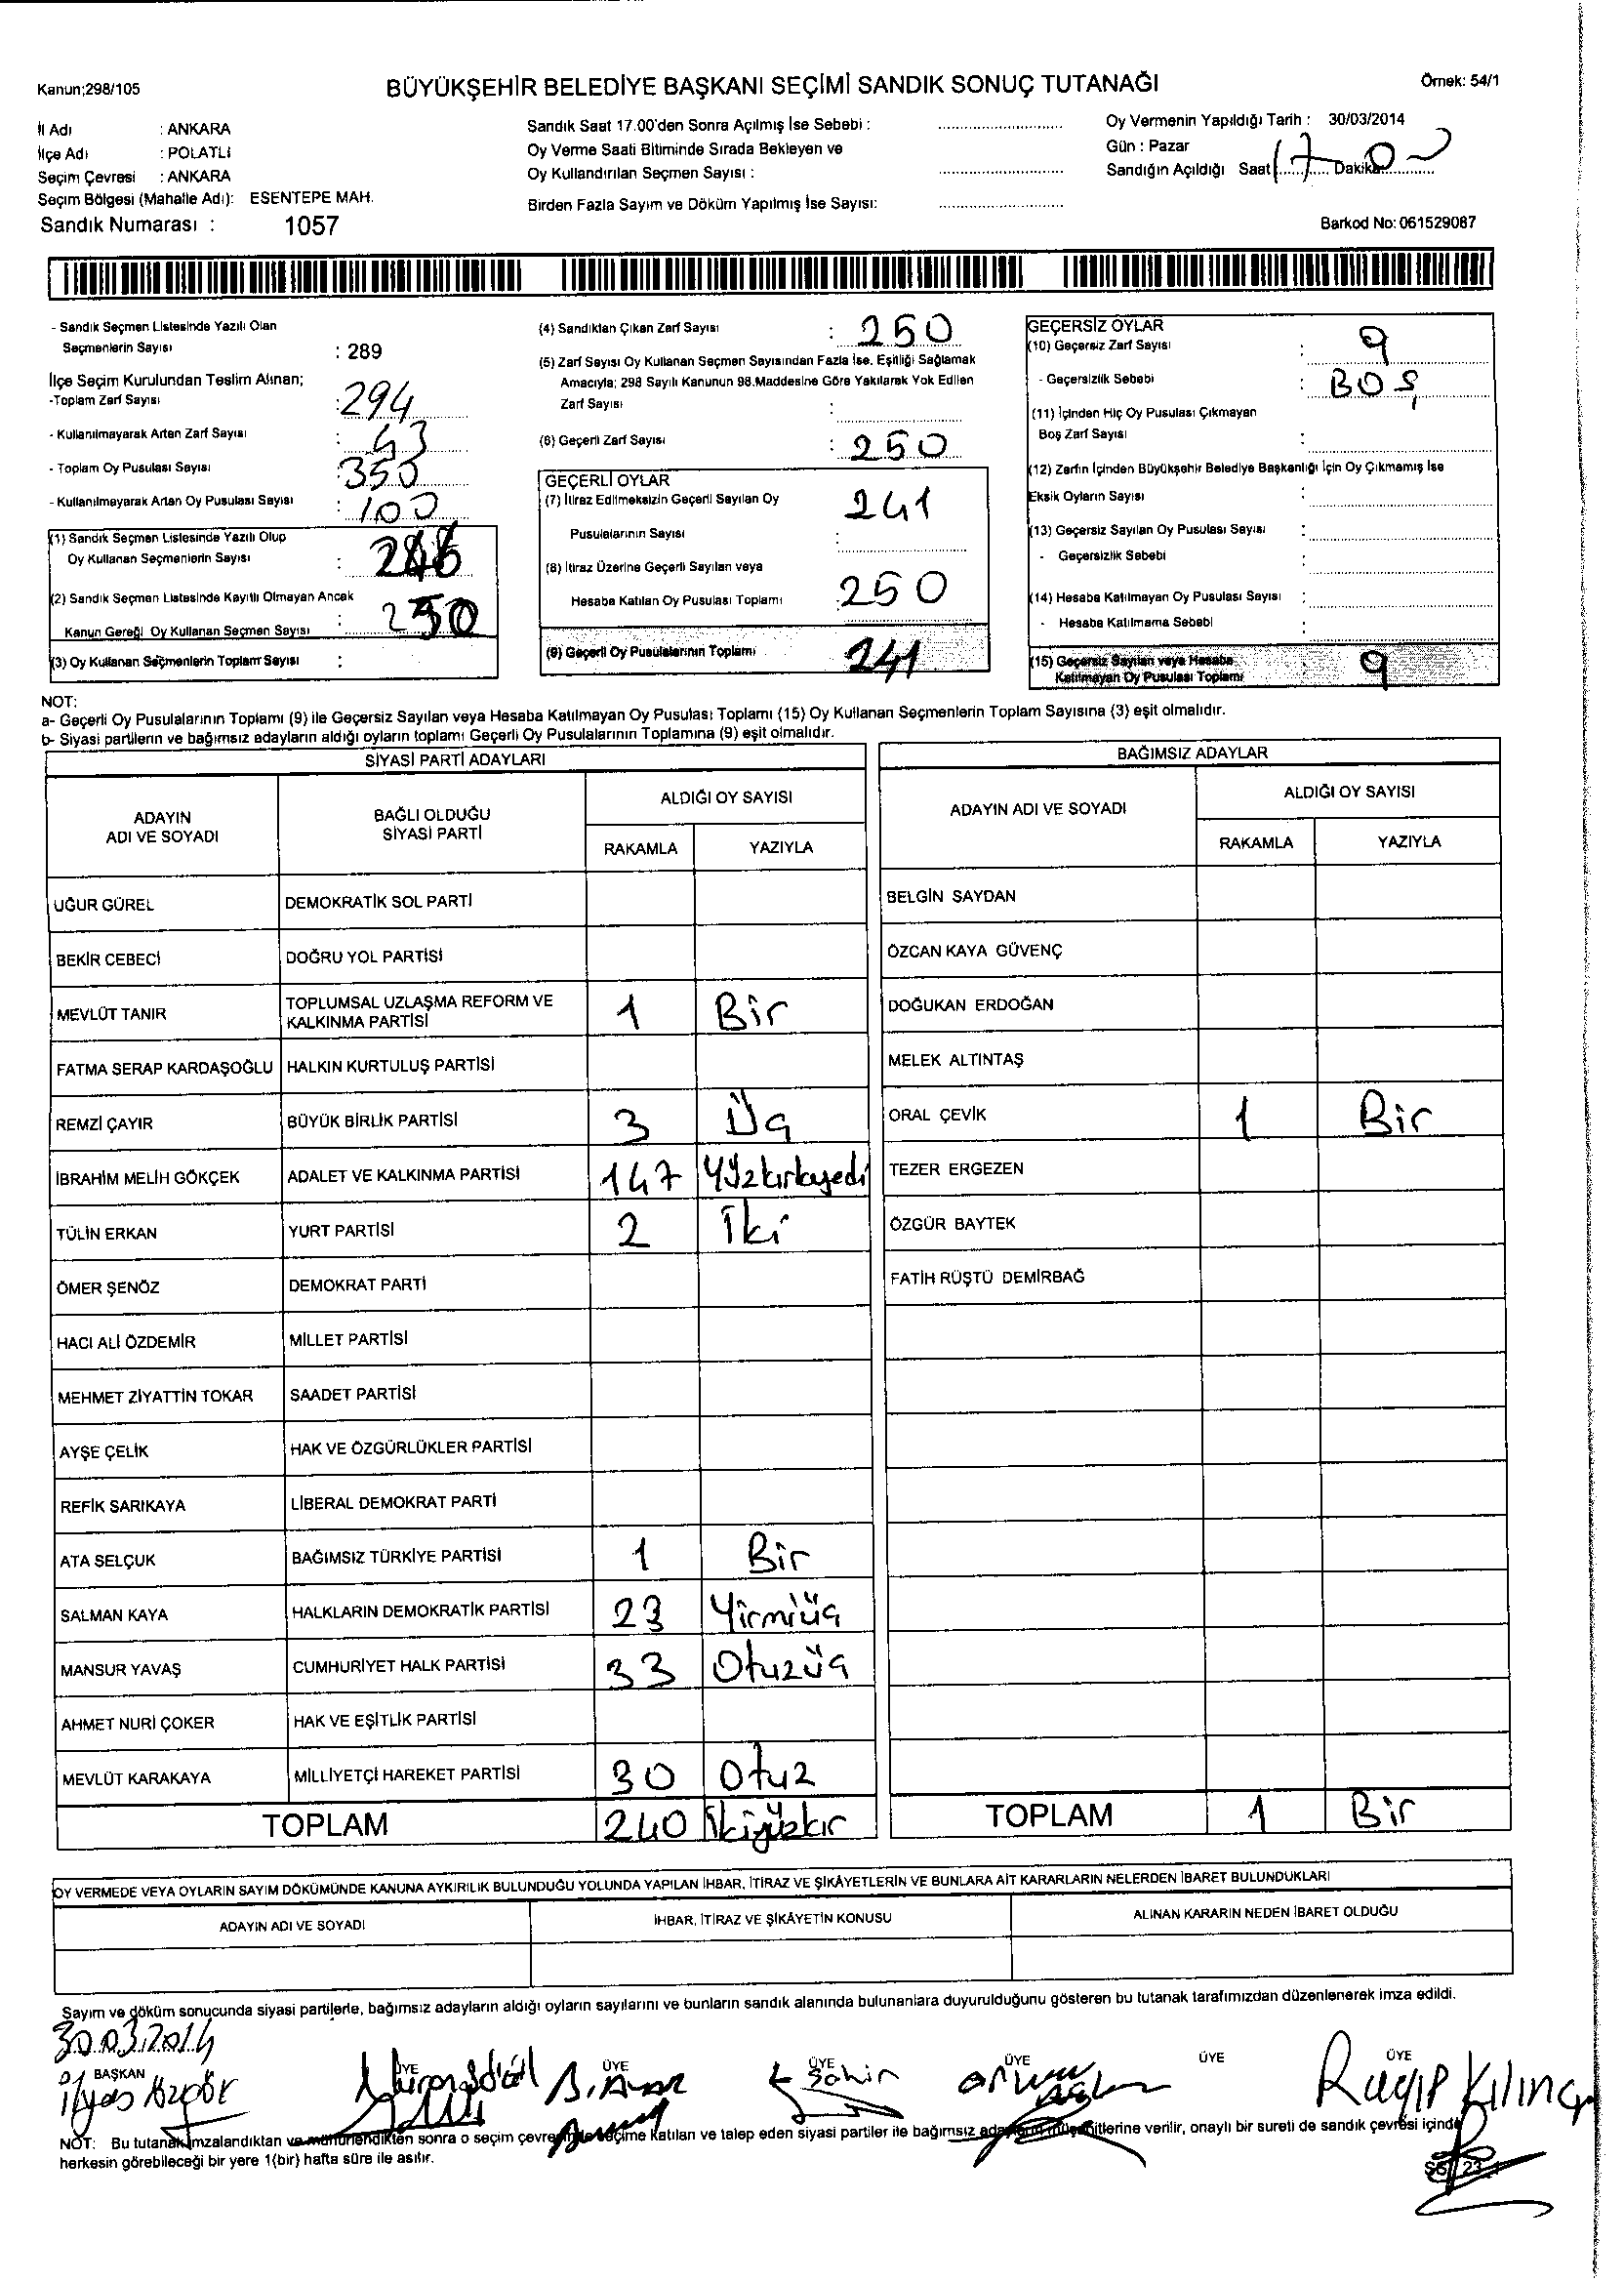 Kanun;298/105
BÜYÜKŞEHİR BELEDİYE BAŞKANI SEÇİMİ SANDIK SONUÇ TUTANAĞI
Örnek: 54/1
İl Adı : ANKARA
İlçe Adı : POLATLI
Seçim Çevresi : ANKARA
Seçim Bölgesi (Mahalle Adı): ESENTEPE MAH.
Sandık Numarası : 1057
Sandık Saat 17.00'den Sonra Açılmış İse Sebebi :
Oy Verme Saati Bitiminde Sırada Bekleyen ve
Oy Kullandırılan Seçmen Sayısı :
Birden Fazla Sayım ve Döküm Yapılmış İse Sayısı:
Oy Vermenin Yapıldığı Tarih : 30/03/2014
Gün : Pazar
Sandığın Açıldığı Saat 17 Dakika
Barkod No: 061529087
- Sandık Seçmen Listesinde Yazılı Olan
Seçmenlerin Sayısı : 289
İlçe Seçim Kurulundan Teslim Alınan;
-Toplam Zarf Sayısı : 294
- Kullanılmayarak Artan Zarf Sayısı : 43
- Toplam Oy Pusulası Sayısı : 350
- Kullanılmayarak Artan Oy Pusulası Sayısı : 100
(1) Sandık Seçmen Listesinde Yazılı Olup
Oy Kullanan Seçmenlerin Sayısı :
(2) Sandık Seçmen Listesinde Kayıtlı Olmayan Ancak
Kanun Gereği Oy Kullanan Seçmen Sayısı : 250
(3) Oy Kullanan Seçmenlerin Toplam Sayısı :
(4) Sandıktan Çıkan Zarf Sayısı : 250
(5) Zarf Sayısı Oy Kullanan Seçmen Sayısından Fazla İse. Eşitliği Sağlamak
Amacıyla; 298 Sayılı Kanunun 98.Maddesine Göre Yakılarak Yok Edilen
Zarf Sayısı :
(6) Geçerli Zarf Sayısı : 250
GEÇERLİ OYLAR
(7) İtiraz Edilmeksizin Geçerli Sayılan Oy 241
Pusulalarının Sayısı :
(8) İtiraz Üzerine Geçerli Sayılan veya
Hesaba Katılan Oy Pusulası Toplamı : 250
(9) Geçerli Oy Pusulalarının Toplamı 241
GEÇERSİZ OYLAR
(10) Geçersiz Zarf Sayısı : 9
- Geçersizlik Sebebi : BOŞ
(11) İçinden Hiç Oy Pusulası Çıkmayan
Boş Zarf Sayısı :
(12) Zarfın İçinden Büyükşehir Belediye Başkanlığı İçin Oy Çıkmamış İse
Eksik Oyların Sayısı :
(13) Geçersiz Sayılan Oy Pusulası Sayısı :
- Geçersizlik Sebebi :
(14) Hesaba Katılmayan Oy Pusulası Sayısı :
- Hesaba Katılmama Sebebi :
(15) Geçersiz Sayılan veya Hesaba
Katılmayan Oy Pusulası Toplamı 9
NOT:
a- Geçerli Oy Pusulalarının Toplamı (9) ile Geçersiz Sayılan veya Hesaba Katılmayan Oy Pusulası Toplamı (15) Oy Kullanan Seçmenlerin Toplam Sayısına (3) eşit olmalıdır.
b- Siyasi partilerin ve bağımsız adayların aldığı oyların toplamı Geçerli Oy Pusulalarının Toplamına (9) eşit olmalıdır.
SİYASİ PARTİ ADAYLARI
ADAYIN ADI VE SOYADI BAĞLI OLDUĞU SİYASİ PARTİ ALDIĞI OY SAYISI
RAKAMLA YAZIYLA
UĞUR GÜREL DEMOKRATİK SOL PARTİ
BEKİR CEBECİ DOĞRU YOL PARTİSİ
MEVLÜT TANIR TOPLUMSAL UZLAŞMA REFORM VE KALKINMA PARTİSİ 1 Bir
FATMA SERAP KARDAŞOĞLU HALKIN KURTULUŞ PARTİSİ
REMZİ ÇAYIR BÜYÜK BİRLİK PARTİSİ 3 Üç
İBRAHİM MELİH GÖKÇEK ADALET VE KALKINMA PARTİSİ 147 Yüzkırkyedi
TÜLİN ERKAN YURT PARTİSİ 2 İki
ÖMER ŞENÖZ DEMOKRAT PARTİ
HACI ALİ ÖZDEMİR MİLLET PARTİSİ
MEHMET ZİYATTİN TOKAR SAADET PARTİSİ
AYŞE ÇELİK HAK VE ÖZGÜRLÜKLER PARTİSİ
REFİK SARIKAYA LİBERAL DEMOKRAT PARTİ
ATA SELÇUK BAĞIMSIZ TÜRKİYE PARTİSİ 1 Bir
SALMAN KAYA HALKLARIN DEMOKRATİK PARTİSİ 23 Yirmiüç
MANSUR YAVAŞ CUMHURİYET HALK PARTİSİ 33 Otuzüç
AHMET NURİ ÇOKER HAK VE EŞİTLİK PARTİSİ
MEVLÜT KARAKAYA MİLLİYETÇİ HAREKET PARTİSİ 30 Otuz
TOPLAM 240 İkiyüzkır
BAĞIMSIZ ADAYLAR
ADAYIN ADI VE SOYADI ALDIĞI OY SAYISI
RAKAMLA YAZIYLA
BELGİN SAYDAN
ÖZCAN KAYA GÜVENÇ
DOĞUKAN ERDOĞAN
MELEK ALTINTAŞ
ORAL ÇEVİK 1 Bir
TEZER ERGEZEN
ÖZGÜR BAYTEK
FATİH RÜŞTÜ DEMİRBAĞ
TOPLAM 1 Bir
OY VERMEDE VEYA OYLARIN SAYIM DÖKÜMÜNDE KANUNA AYKIRILIK BULUNDUĞU YOLUNDA YAPILAN İHBAR, İTİRAZ VE ŞİKÂYETLERİN VE BUNLARA AİT KARARLARIN NELERDEN İBARET BULUNDUKLARI
ADAYIN ADI VE SOYADI İHBAR, İTİRAZ VE ŞİKÂYETİN KONUSU ALINAN KARARIN NEDEN İBARET OLDUĞU
Sayım ve döküm sonucunda siyasi partilerle, bağımsız adayların aldığı oyların sayılarını ve bunların sandık alanında bulunanlara duyurulduğunu gösteren bu tutanak tarafımızdan düzenlenerek imza edildi.
30.03.2014
BAŞKAN ÜYE ÜYE ÜYE ÜYE ÜYE ÜYE
Şahin Ragıp Kılınç
NOT: Bu tutanak imzalandıktan ve mühürlendikten sonra o seçim çevresinde seçime katılan ve talep eden siyasi partiler ile bağımsız adayların müşahitlerine verilir, onaylı bir sureti de sandık çevresi içinde
herkesin görebileceği bir yere 1(bir) hafta süre ile asılır.